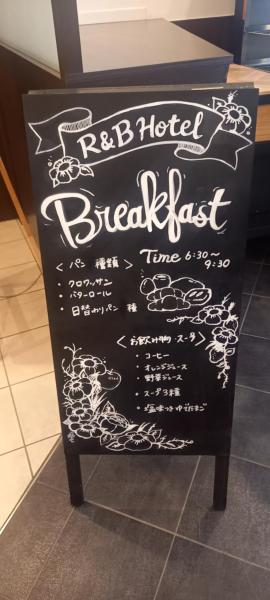 R&B Hotel
Breakfast
Time 6:30~
9:30
<パン 種類>
・クロワッサン
・バターロール
・日替わりパン 種
<お飲み物・スープ>
・コーヒー
・オレンジジュース
野菜ジュース
・スープ3種
・塩味つきゆでたまご